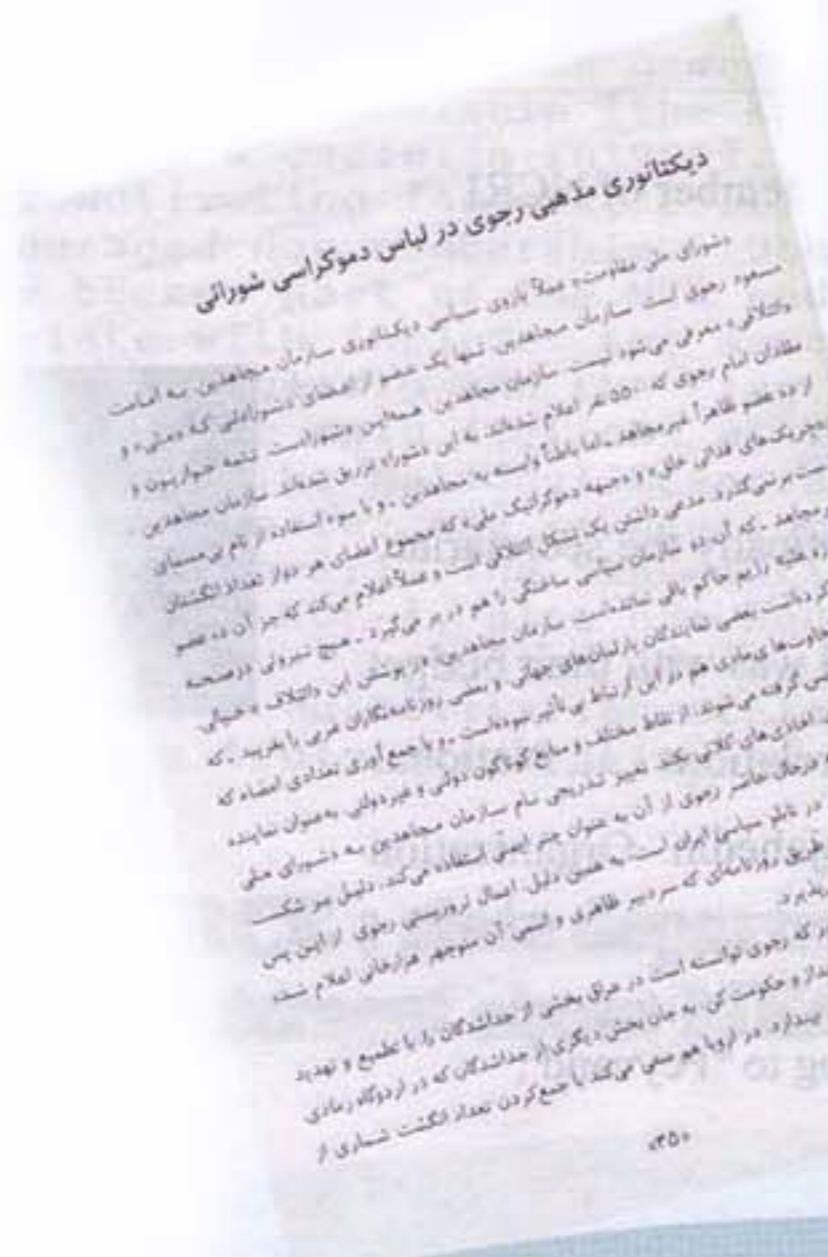 دیکتاتوری مذهبی رجوی در لباس دموکراسی شورائی
«شورای ملی مقاومت» عملاً بازوی سیاسی دیکتاتوری سازمان مجاهدین به امامت
مسعود رجوی است. سازمان مجاهدین، تنها یک عضو از اعضای «شورا»ئی که «ملی» و
«ائتلافی» معرفی می‌شود نیست. سازمان مجاهدین همه‌این «شورا»است. تتمه حواریون و
مقلدان امام رجوی که ۵۵۰ نفر اعلام شده‌اند، به این «شورا» تزریق شده‌اند. سازمان مجاهدین -
از ده عضو ظاهراً غیرمجاهد - اما باطناً وابسته به مجاهدین - و با سوء استفاده از نام بی‌مسمای
چریک‌های فدائی خلق» و «جبهه دموکراتیک ملی» که مجموع اعضای هر دواز تعداد انگشتان
ست برنمی‌گذرد، مدعی داشتن یک تشکل ائتلافی است و عملاً اعلام می‌کند که جز آن ده عضو
مجاهد - که آن دو سازمان سیاسی ساختگی را هم در بر می‌گیرد - هیچ نیروئی درصحنه
علیه رژیم حاکم باقی نمانده‌است. سازمان مجاهدین، درپوشش این «ائتلاف» خیالی
کرده‌است بعضی نمایندگان پارلمان‌های جهانی و بعضی روزنامه‌نگاران غربی را بفریبد - که
مادی هم در این ارتباط بی‌تأثیر نبوده‌است - و با جمع آوری تعدادی امضاء که
گرفته می‌شوند، از نقاط مختلف و منابع گوناگون دولتی و غیردولتی به‌عنوان نماینده
اخاذی‌های کلانی بکند. تغییر تدریجی نام سازمان مجاهدین به «شورای ملی
درحال حاضر رجوی از آن به عنوان چتر ایمنی استفاده می‌کند، دلیل بر شکست
در تابلو سیاسی ایران است. به همین دلیل، اعمال تروریستی رجوی از این پس
طریق روزنامه‌ای که سردبیر ظاهری و اسمی آن منوچهر هزارخانی اعلام شده
پذیرد.
که رجوی توانسته است در عراق بخشی از جداشدگان را، با تطمیع و تهدید
و حکومت کن، به جان بخش دیگری از جداشدگان که در اردوگاه رمادی
بیندازد، در اروپا هم سعی می‌کند با جمع‌کردن تعداد انگشت شماری از
«۳۵»